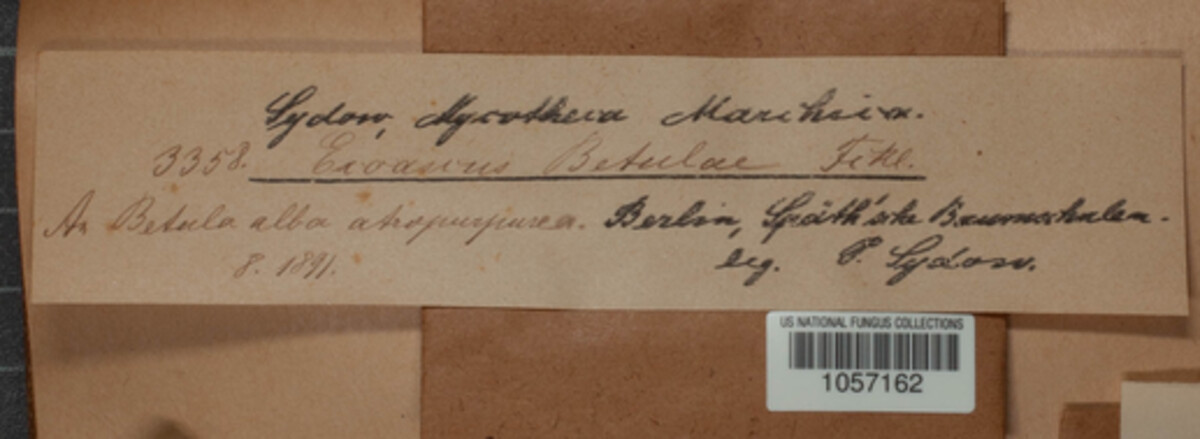 Sydow, Mycotheca Marchica.
3358. Exoascus Betulae Fckl.
An Betula alba atropurpurea. Berlin, Späth'sche Baumschulen.
8. 1891. leg. P. Sydow.
US NATIONAL FUNGUS COLLECTIONS
1057162